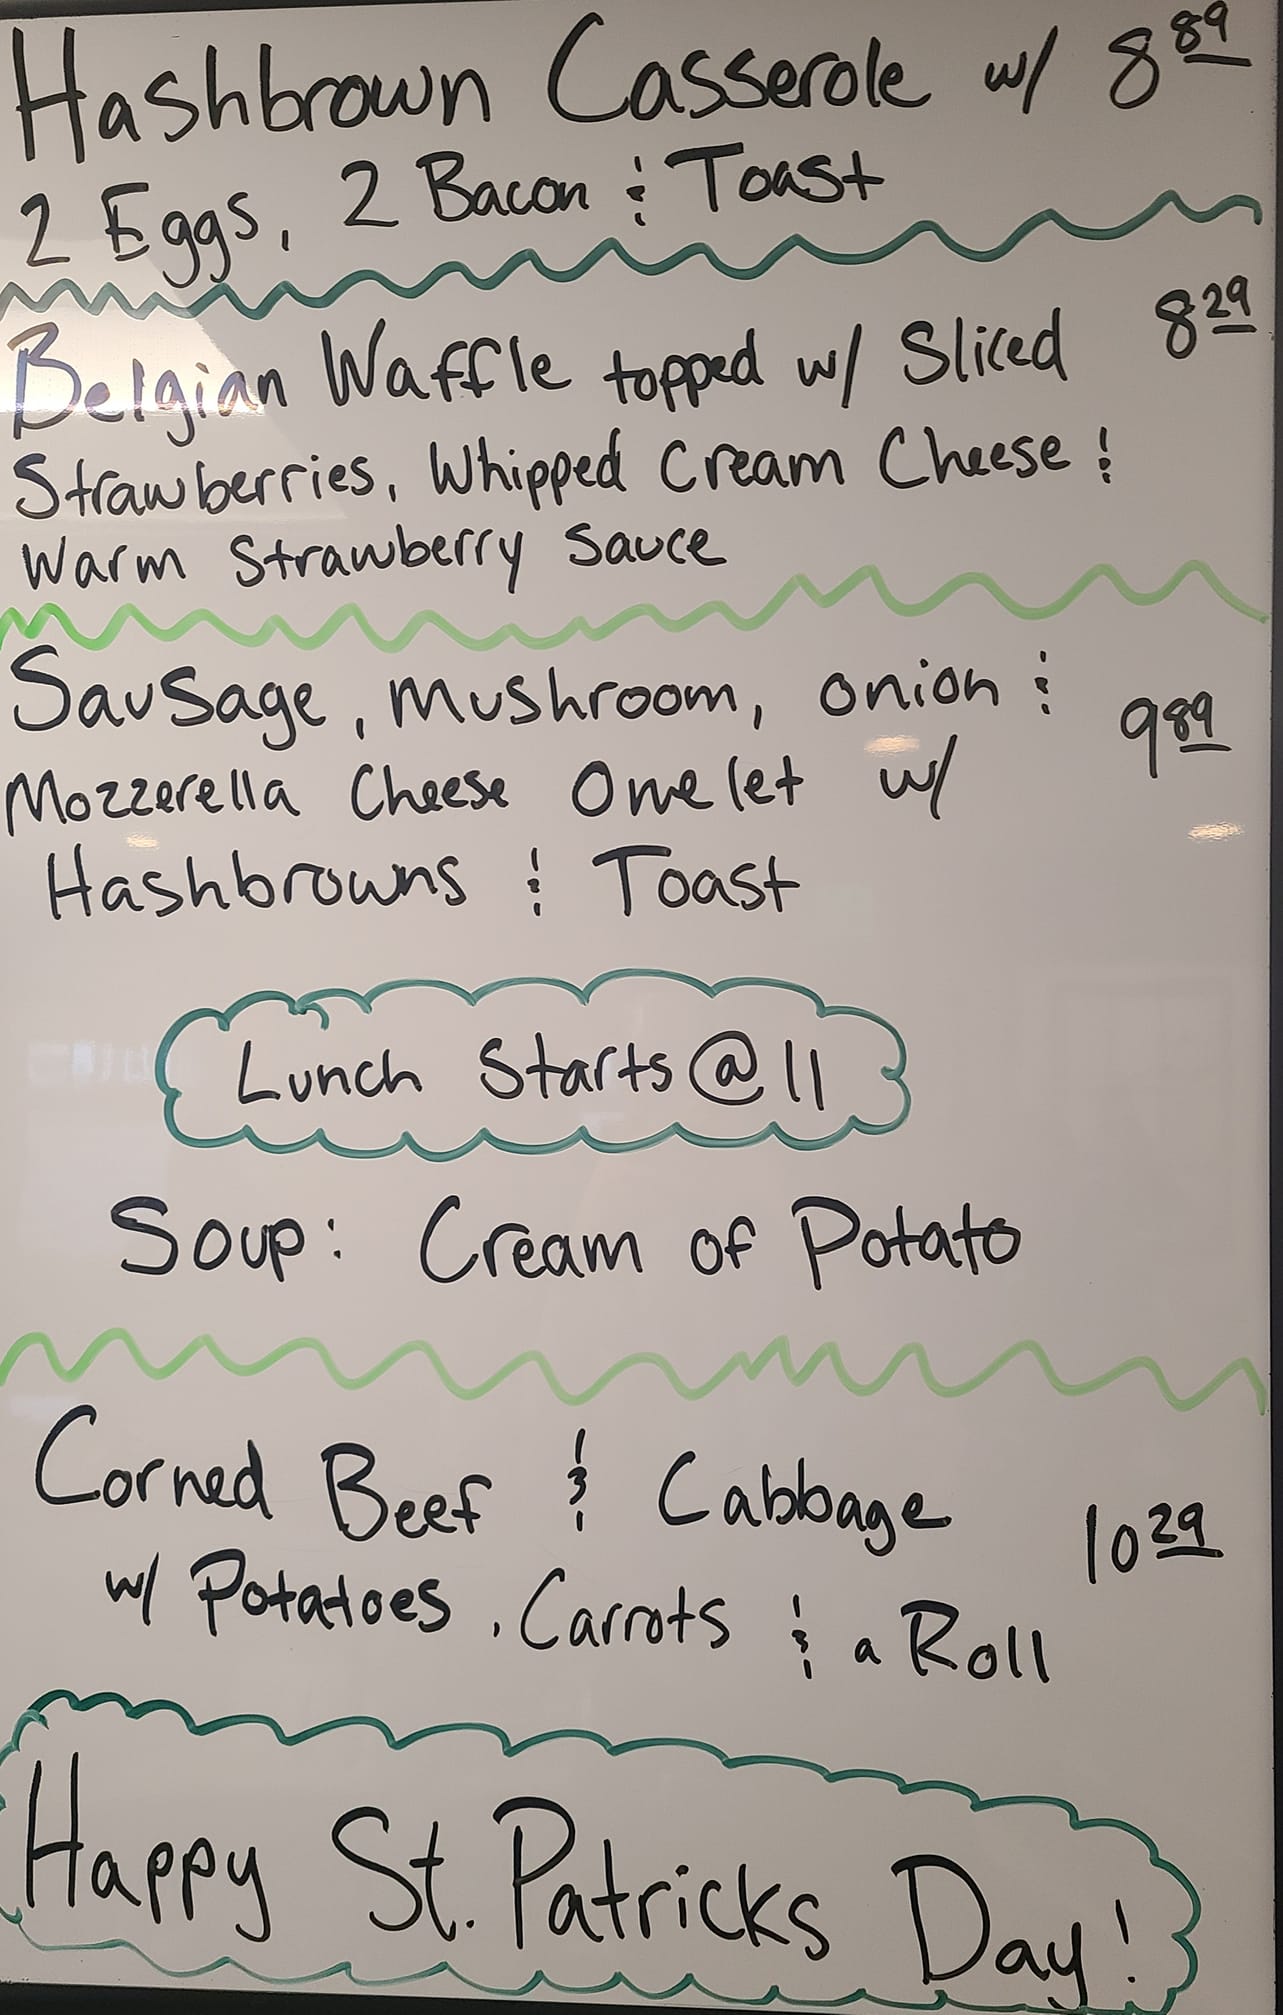 Hashbrown Casserole w/ 8 89
2 Eggs, 2 Bacon & Toast
Belgian Waffle topped w/ Sliced 8 29
Strawberries, Whipped Cream Cheese &
Warm Strawberry Sauce
Sausage, Mushroom, Onion &
Mozzerella Cheese Omelet w/ 9 89
Hashbrowns & Toast
Lunch Starts @ 11
Soup: Cream of Potato
Corned Beef & Cabbage 10 29
w/ Potatoes, Carrots & a Roll
Happy St. Patricks Day!